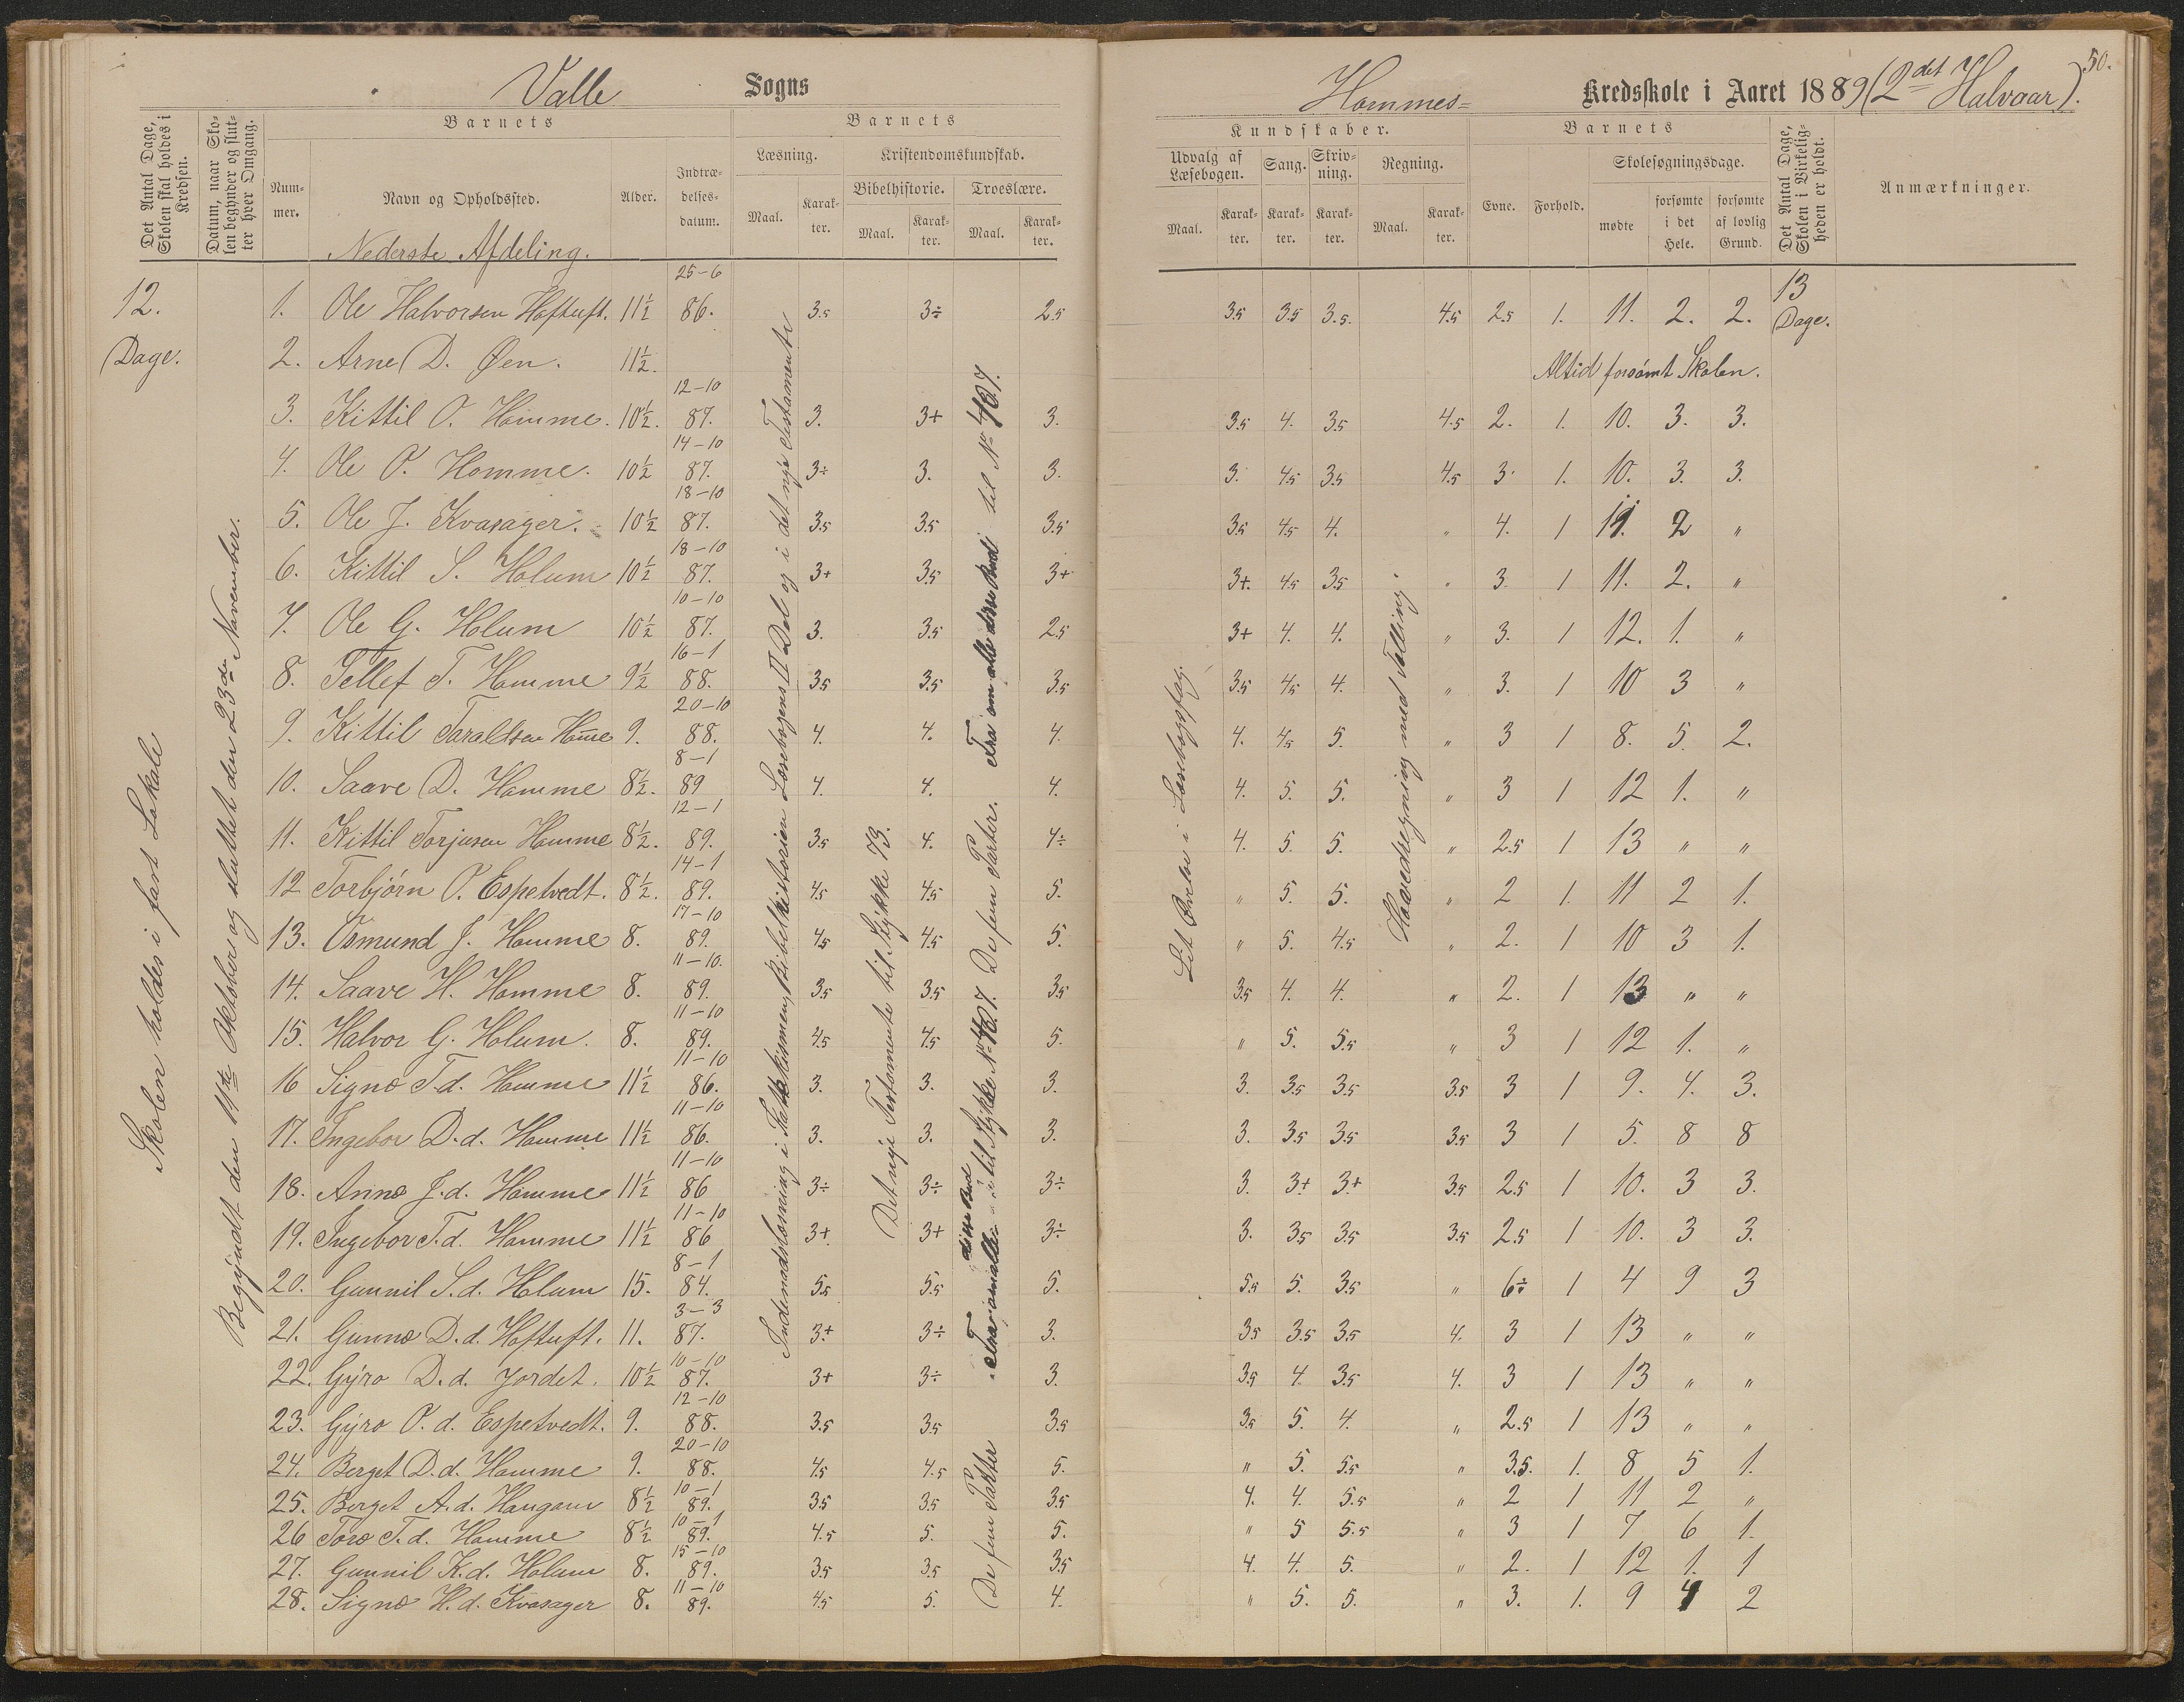 Valle Sogns
Hommes= Kredsskole i Aaret 1889 (2det Halvaar). 50.
Det Antal Dage, Skolen skal holdes i Kredsen.
Datum, naar Skolen begynder og slutter hver Omgang.
Barnets
Nummer.
Navn og Opholdssted.
Alder.
Indtrædelsesdatum.
Barnets
Læsning.
Maal.
Karakter.
Kristendomskundskab.
Bibelhistorie.
Maal.
Karakter.
Troeslære.
Maal.
Karakter.
Kundskaber.
Udvalg af Læsebogen.
Maal.
Karakter.
Sang.
Karakter.
Skrivning.
Karakter.
Regning.
Maal.
Karakter.
Barnets
Evne.
Forhold.
Skolesøgningsdage.
mødte
forsømte i det Hele.
forsømte af lovlig Grund.
Det Antal Dage, Skolen i Virkeligheden er holdt.
Anmærkninger.
Nederste Afdeling.
12. Dage.
13 Dage.
Skolen holdes i fast Lokale
Begyndt den 11te Oktober og sluttet den 23de November.
Indenadslæsning i Katekismen, Bibelhistorien Læsebogens II Del og i det nye Testamente
Det nye Testamente til Stykke 73.
De fem Parter. Fra om alle disse Bud til No 407.
De fem Parter
Let Øvelse i Læsebogsfag.
Hovedregning med Tælling.
1. Ole Halvorsen Hoftuft. 11½ 25-6 86. 3.5 3÷ 2.5 3.5 3.5 3.5. 4.5 2.5 1. 11. 2. 2.
2. Arne D. Øen. 11½. Altid forsømt Skolen.
3. Kittil O. Homme. 10½. 12-10 87. 3. 3+ 3. 3.5 4. 3.5 4.5 2. 1. 10. 3. 3.
4. Ole O. Homme. 10½ 14-10 87. 3÷ 3. 3. 3. 4.5 3.5 4.5 3. 1. 10. 3. 3.
5. Ole J. Kvasager. 10½ 18-10 87. 3.5 3.5 3.5 3.5 4.5 4. " 4. 1 11. 2 "
6. Kittil S. Holum 10½ 18-10 87. 3+ 3.5 3+ 3+. 4.5 3.5 " 3. 1 11. 2. "
7. Ole G. Holum 10½ 10-10 87. 3. 3.5 2.5 3+ 4. 4. " 3. 1 12. 1. "
8. Tellef T. Homme 9½ 16-1 88. 3.5 3.5 3.5 3.5 4.5 4. " 3. 1 10 3 "
9. Kittil Taraldsen Home 9. 20-10 88. 4. 4. 4. 4. 4.5 5. " 3 1 8. 5. 2.
10. Saave D. Homme 8½. 8-1 89 4. 4. 4. 4. 5. 5. " 3 1 12 1. "
11. Kittil Torjusen Homme 8½. 12-1 89. 3.5 4. 4÷ 4. 5. 5. " 2.5 1 13 " "
12 Torbjörn O. Espetvedt. 8½. 14-1 89. 4.5 4.5 5. " 5. 5. " 2 1. 11 2 1.
13. Osmund J. Homme 8. 17-10 89. 4.5 4.5 5. " 5. 4.5 " 2. 1 10 3 1.
14. Saave H. Homme 8. 11-10. 89. 3.5 3.5 3.5 3.5 4. 4. " 2. 1 13 " "
15. Halvor G. Holum. 8. 11-10 89. 4.5 4.5 5. " 5. 5.5 " 3 1 12 1. "
16 Signe T.d. Homme 11½ 11-10 86. 3. 3. 3. 3. 3.5 3.5 3.5 3 1 9. 4. 3.
17. Ingebor D.d. Homme 11½ 11-10 86. 3. 3. 3. 3. 3.5 3.5 3.5 3 1 5. 8 8
18. Anne J.d. Homme 11½ 11-10 86 3÷ 3÷ 3÷ 3. 3+ 3+ 3.5 2.5 1 10. 3 3.
19. Ingebor T.d. Homme 11½ 11-10 86 3+ 3+ 3÷ 3. 3.5 3.5 3.5 2.5 1 10. 3 3.
20. Gunnil S.d. Holum 15. 8-1 84. 5.5 5.5 5. 5.5 5. 3.5 " 6÷ 1 4 9 3
21. Gunne D.d. Hoftuft. 11. 3-3 87. 3+ 3÷ 3. 3.5 3.5 3.5 4. 3 1 13 " "
22. Gyro D.d. Jordet. 10½ 10-10 87. 3+ 3÷ 3. 3.5 4 3.5 4. 3 1 13 " "
23. Gyro O.d. Espetvedt. 9. 12-10 88. 3.5 3.5 3.5 3.5 5. 4. " 2.5 1 13 " "
24. Berget D.d. Homme 9. 20-10 88. 4.5 4.5 5. " 5. 5.5 " 3.5. 1. 8 5 1.
25. Berget A.d. Haugom 8½ 10-1 89. 3.5 3.5 3.5 4. 4. 5.5 " 2 1 11 2 "
26 Tore T.d. Homme 8½ 10-1 89. 4.5 5. 5. " 5 5.5 " 3 1 7 6 1.
27. Gunnil K.d. Holum 8. 15-10 89. 3.5 3.5 3.5 4. 4. 5. " 2. 1 12 1. 1
28. Signe H.d. Kvasager 8. 11-10 89. 4.5 5. 4. " 5. 5. " 3. 1. 9 4 2